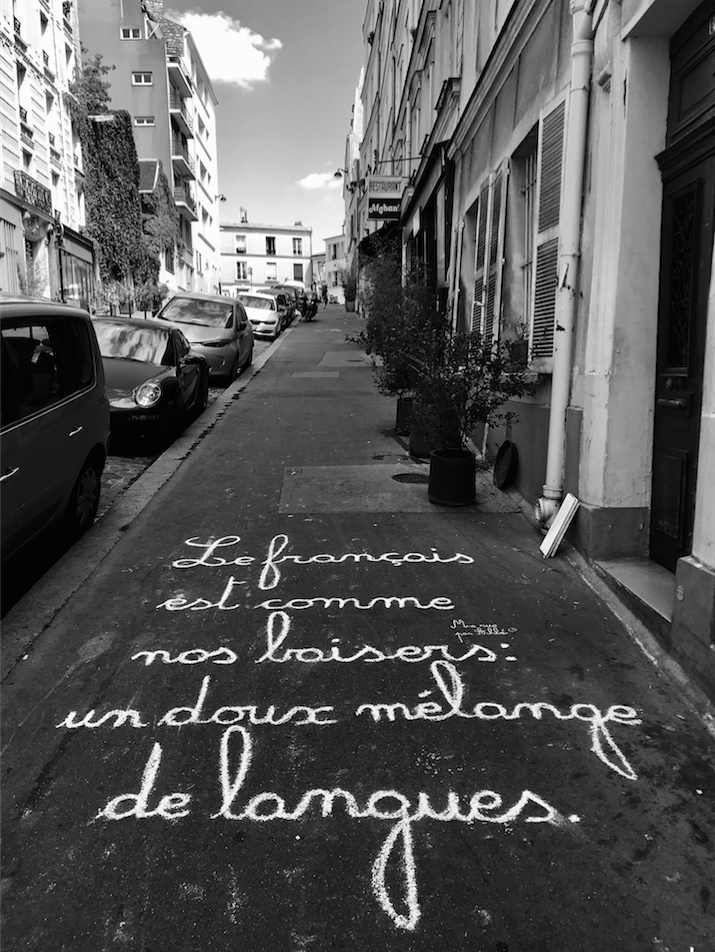 RESTAURANT
Afghani
Le français
est comme
nos baisers:
Ma rue
par Achbé
un doux mélange
de langues.